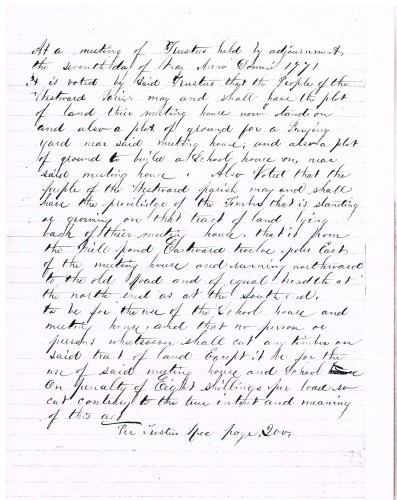 At a meeting of Trustees held by adjournment
the seventh day of May Anno Domini 1771
It is voted by said Trustees that the People of the
Westward Parish may and shall have the plot
of land their meeting house now stands on
and also a plot of ground for a Burying
yard near said meeting house, and also a plot
of ground to build a School house on, near
said meeting house. Also Voted that the
people of the Westward parish may and shall
have the priviledge of the Timber that is standing
or growing on that tract of land lying
back of their meeting house, that is from
the Mill pond Eastward twelve poles East
of the meeting house and running northward
to the old Road and of equal breadth at
the north end as at the South end.
to be for the use of the School house and
meeting house, and that no person or
persons whatsoever shall cut any timber on
said tract of land Except it be for the
use of said meeting house and School
On penalty of Eight shillings per load so
cut contrary to the true intent and meaning
of this act
Per Trustees Rec page 200